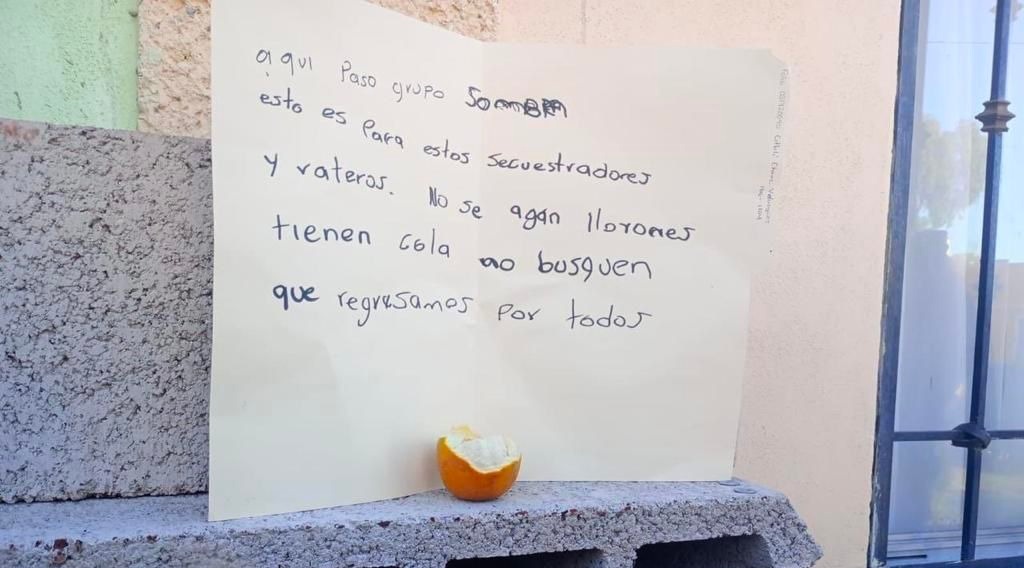 aqui Paso grupo
esto es Para estos secuestradores
y rateros. No se agan llorones
tienen cola no busquen
que regresamos por todos